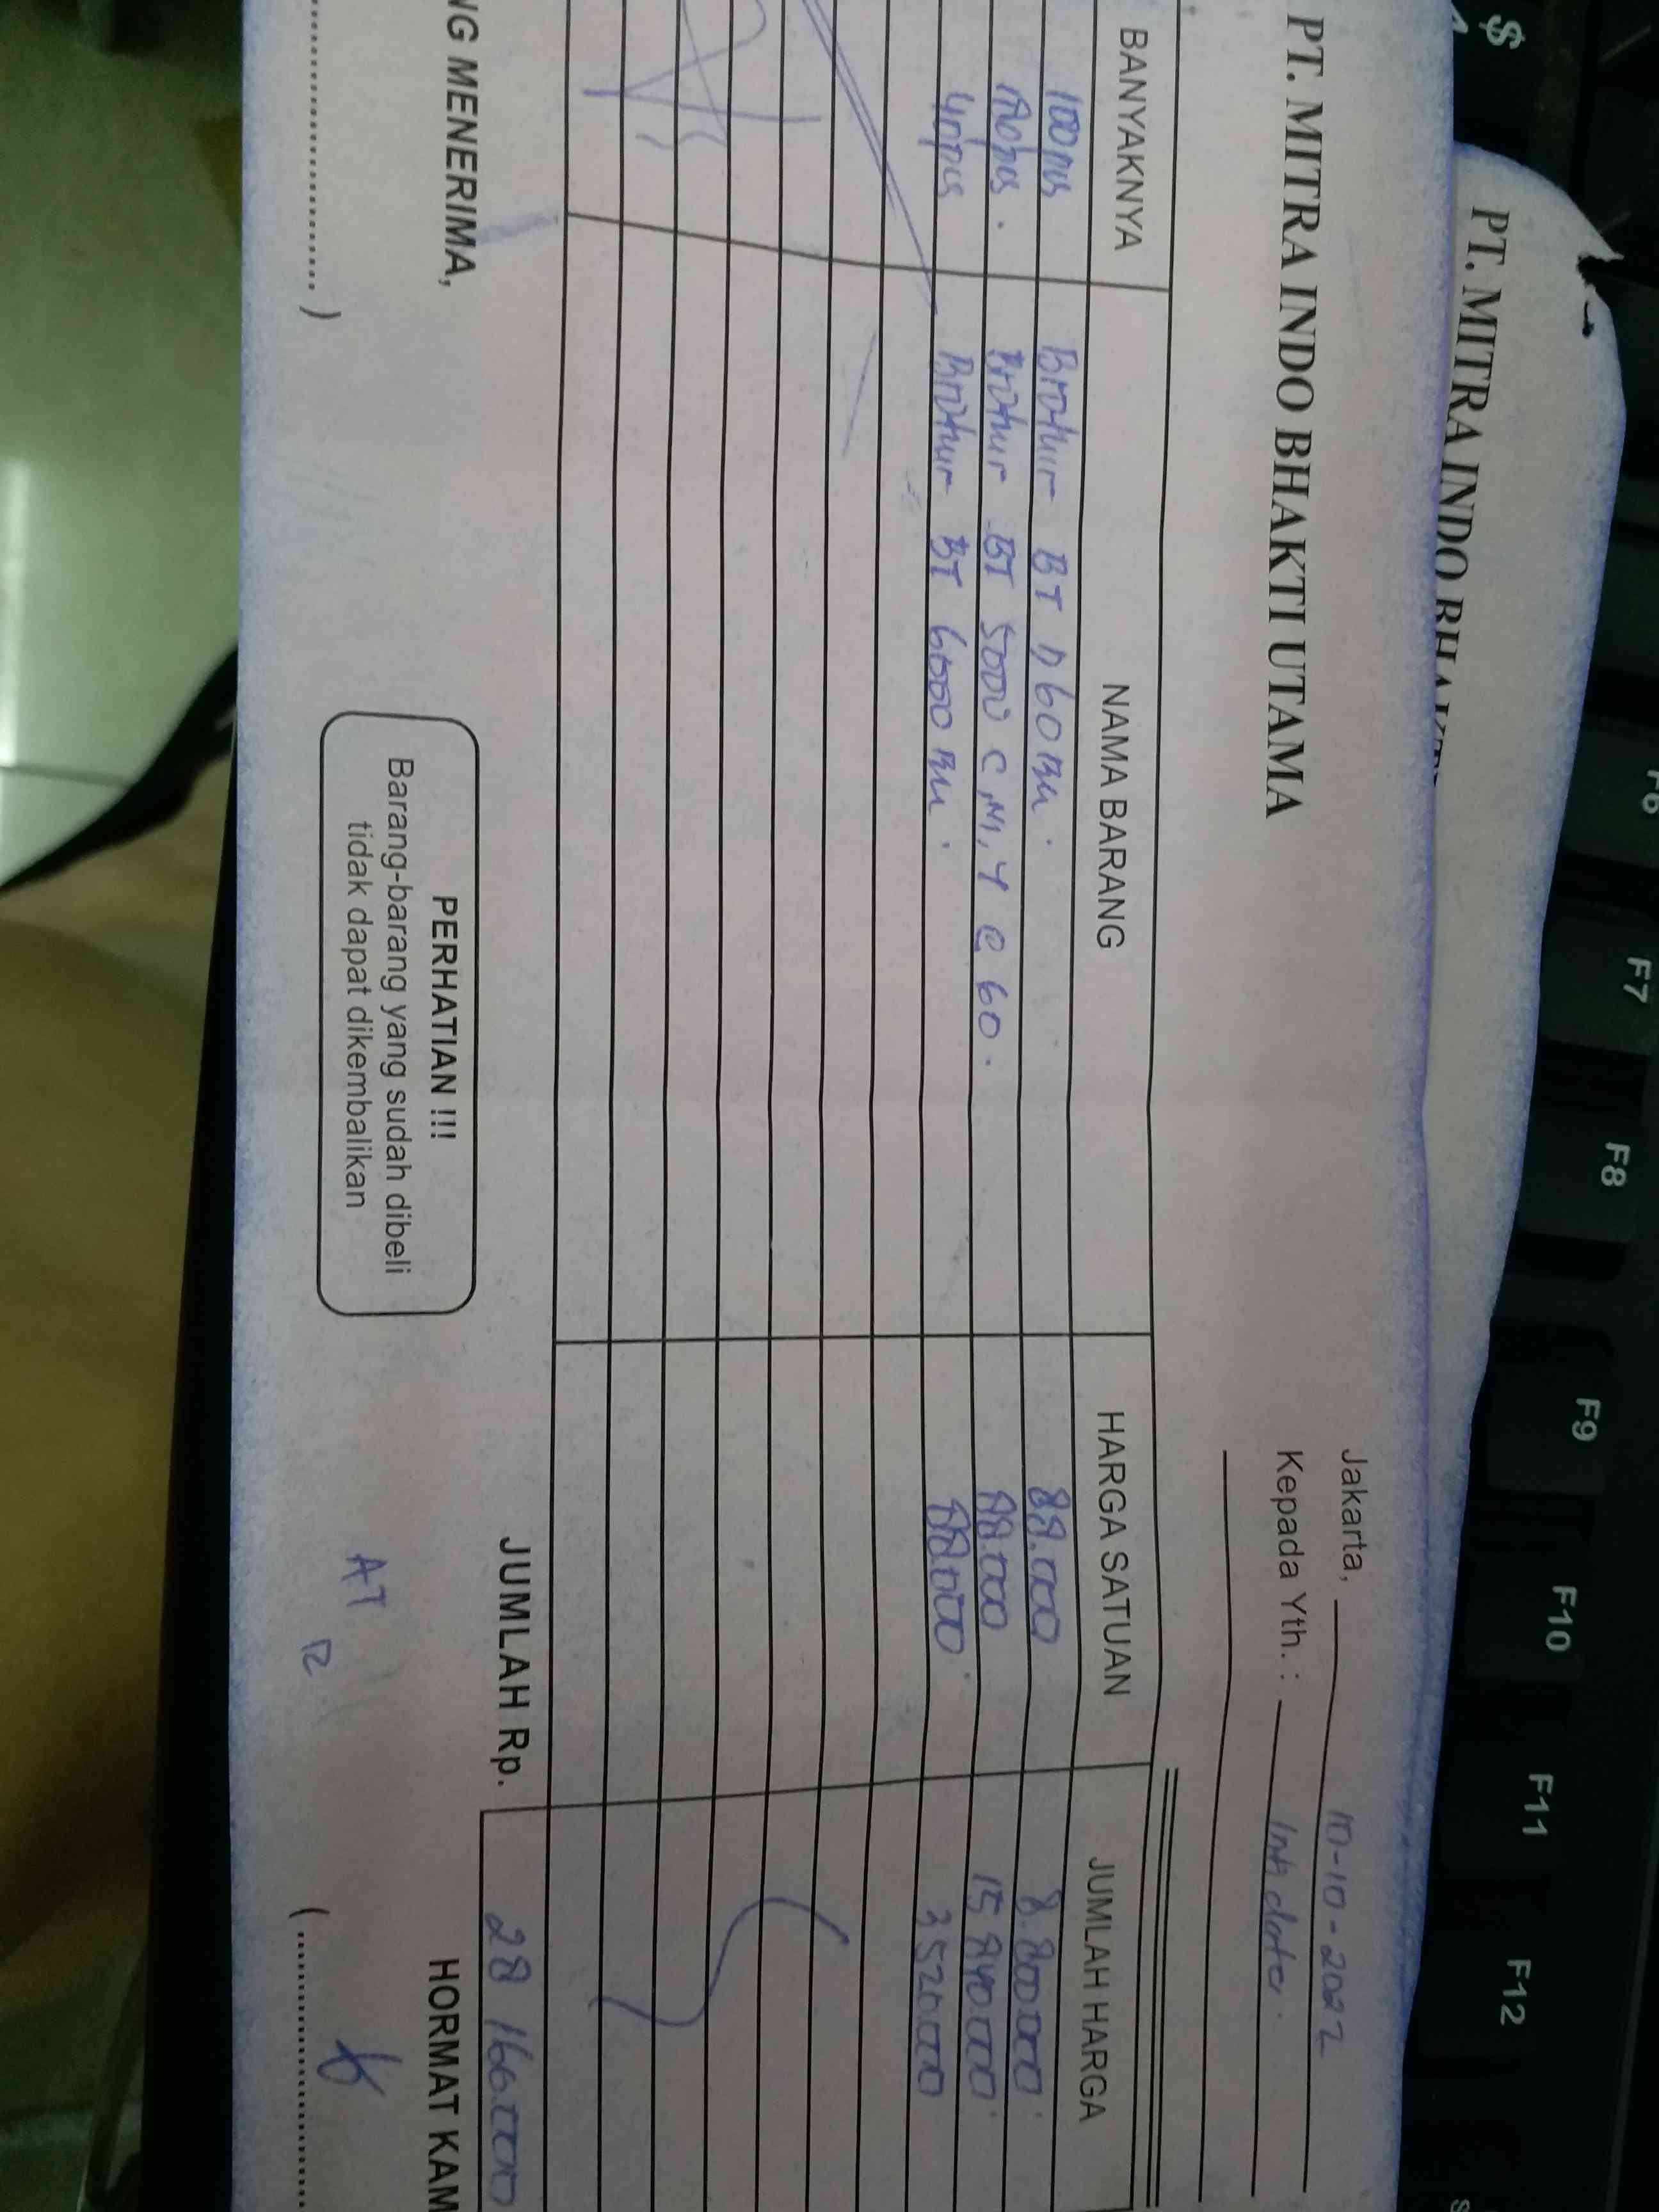 PT. MITRA INDO BHAKTI
PT. MITRA INDO BHAKTI UTAMA
Jakarta, 10-10-2022
Kepada Yth. : Inti data.
BANYAKNYA NAMA BARANG HARGA SATUAN JUMLAH HARGA
100 pcs Brother BT D60 BK. 88.000 8.800.000
180 pcs. Brother BT 5000 C, M, Y @ 60. 88.000 15 840.000
40 pcs Brother BT 6000 BK. 88.000 3 520.000
JUMLAH Rp. 28 160.000
NG MENERIMA,
HORMAT KAM
PERHATIAN !!!
Barang-barang yang sudah dibeli
tidak dapat dikembalikan
AT
$
F6
F7
F8
F9
F10
F11
F12
S